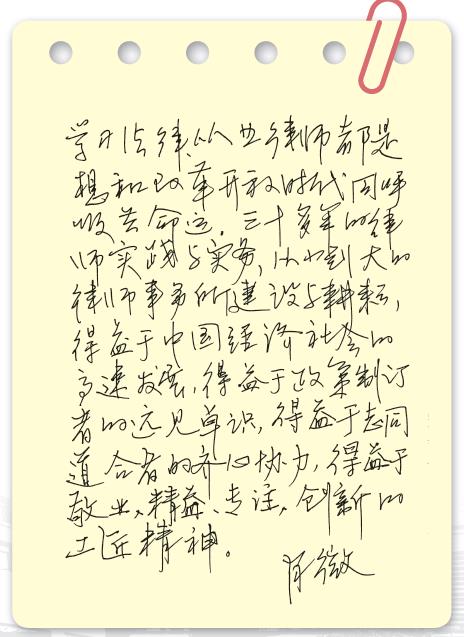 学习法律、从业律师都是
想和改革开放时代同呼
吸共命运。三十多年的律
师实践与实务，从小到大的
律师事务所建设与耕耘，
得益于中国经济社会的
高速发展，得益于政策制订
者的远见卓识，得益于志同
道合者的齐心协力，得益于
敬业、精益、专注、创新的
工匠精神。